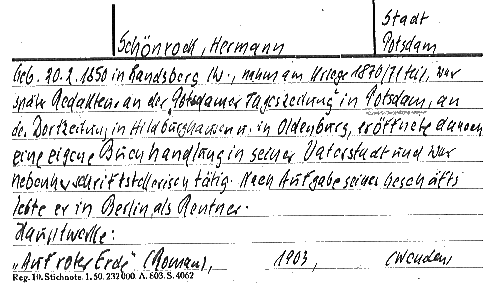 Stadt
Schönrock, Hermann Potsdam
Geb. 20.2.1850 in Landsberg /W., nahm am Kriege 1870/71 teil, war
später Redakteur an der "Potsdamer Tageszeitung" in Potsdam, an
der Dorfzeitung in Hildburghausen u. in Oldenburg, eröffnete danach
eine eigene Buchhandlung in seiner Vaterstadt und war
nebenher schriftstellerisch tätig. Nach Aufgabe seines Geschäfts
lebte er in Berlin als Rentner.
Hauptwerke:
"Auf roter Erde" (Roman), 1903, (Wenden)
Reg. 10. Stichnote. 1. 50. 232000. A. 803. S. 4062